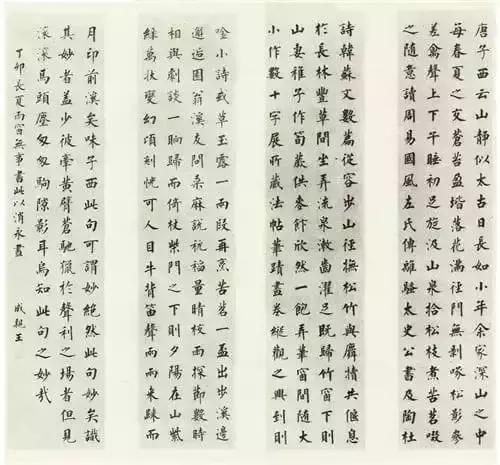 唐子西云山靜似太古日長如小年余家深山之中
每春夏之交蒼苔盈堦落花滿徑門無剝啄松影參
差禽聲上下午睡初足旋汲山泉拾松枝煮苦茗啜
之隨意讀周易國風左氏傳離騷太史公書及陶杜
詩韓蘇文數篇從容步山徑撫松竹與麛犢共偃息
於長林豐草間坐弄流泉漱齒濯足既歸竹窗下則
山妻稚子作筍蕨供麥飯欣然一飽弄筆窗間隨大
小作數十字展所藏法帖筆蹟畫卷縱觀之興到則
唫小詩或草玉露一兩段再烹苦茗一盃出步溪邊
邂逅園翁溪友問桑麻說秔稻量晴校雨探節數時
相與劇談一晌歸而倚杖柴門之下則夕陽在山紫
綠萬狀變幻頃刻恍可人目牛背笛聲兩兩來歸而
月印前溪矣味子西此句可謂妙絕然此句妙矣識
其妙者蓋少彼牽黃臂蒼馳獵於聲利之場者但見
滾滾馬頭塵匆匆駒隙影耳烏知此句之妙哉
丁卯長夏雨窗無事書此以消永晝 成親王